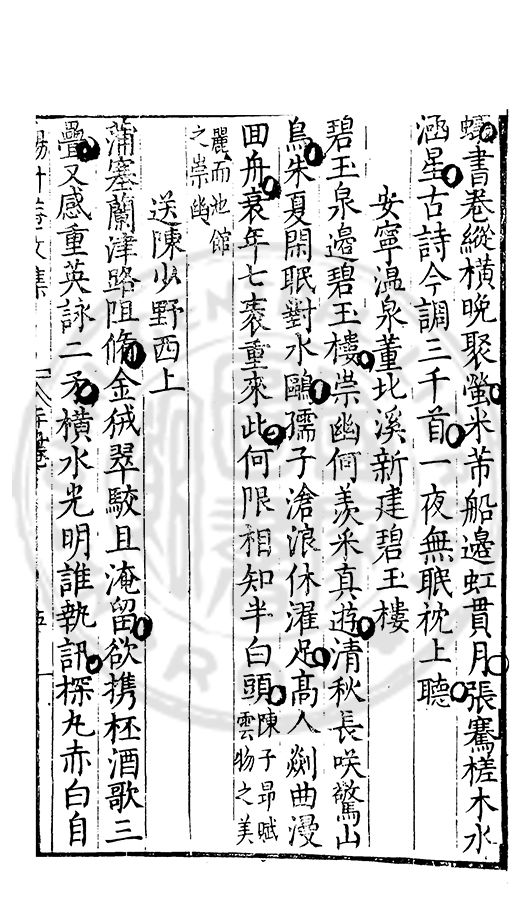 蠹書卷縱橫晚聚螢米芾船邊虹貫月張騫槎木水
涵星古詩今調三千首一夜無眠枕上聽
安寧溫泉董北溪新建碧玉樓
碧玉泉邊碧玉樓崇幽何羨采真遊清秋長咲驚山
鳥朱夏閑眠對水鷗孺子滄浪休濯足高人剡曲漫
囬舟衰年七袠重來此何限相知半白頭陳子昂賦雲物之美
麗而池館之崇幽
送陳少野西上
蒲塞蘭津路阻脩金絨翠駮且淹留欲携杯酒歌三
疊又感重英詠二矛橫水光明誰執訊探丸赤白自